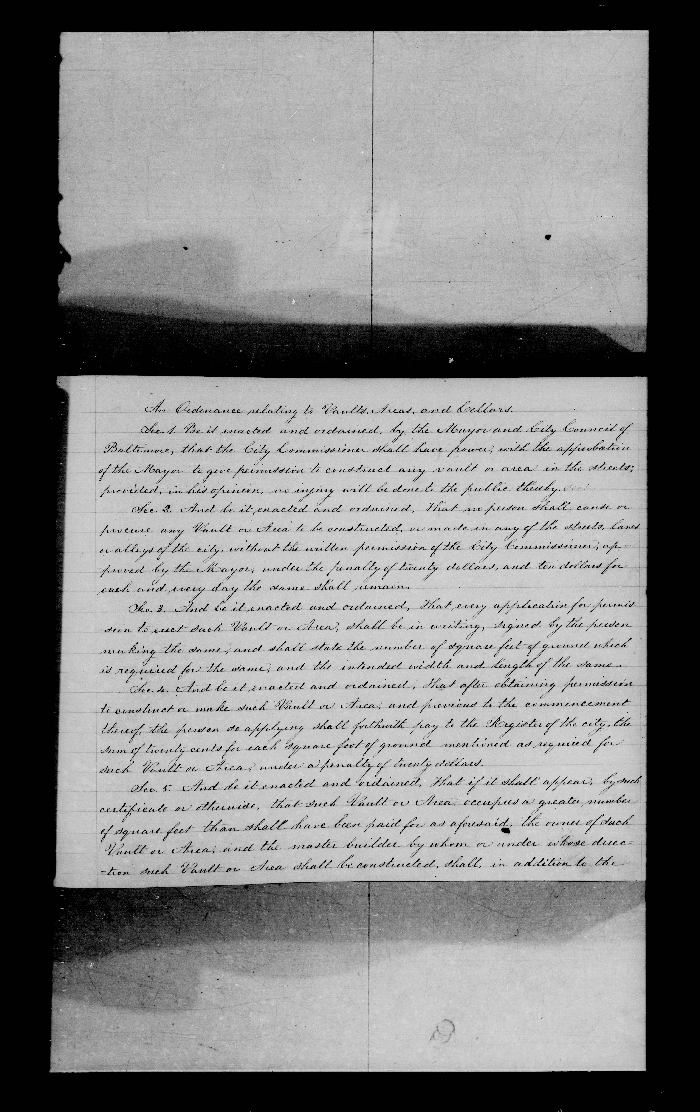 An Ordinance relating to Vaults, Areas, and Cellars.
Sec. 1. Be it enacted and ordained, by the Mayor and City Council of
Baltimore, that the City Commissioner shall have power, with the approbation
of the Mayor to give permission to construct any vault or area in the streets;
provided, in his opinion, no injury will be done to the public thereby.
Sec. 2. And be it enacted and ordained, That no person shall cause or
procure any Vault or Area to be constructed, or made in any of the streets, lanes
or alleys of the city, without the written permission of the City Commissioner, ap-
proved by the Mayor, under the penalty of twenty dollars, and ten dollars for
each and every day the same shall remain.
Sec. 3. And be it enacted and ordained, That every application for permis
sion to erect such Vault or Area, shall be in writing, signed by the person
making the same, and shall state the number of square feet of ground which
is required for the same, and the intended width and length of the same.
Sec. 4. And be it enacted and ordained, That after obtaining permission
to construct or make such Vault or Area, and previous to the commencement
thereof, the person so applying shall forthwith pay to the Register of the city, the
sum of twenty cents for each square foot of ground mentioned as required for
such Vault or Area, under a penalty of twenty dollars.
Sec. 5. And be it enacted and ordained, That if it shall appear, by such
certificate or otherwise, that such Vault or Area occupies a greater number
of square feet than shall have been paid for as aforesaid, the owner of such
Vault or Area, and the master builder by whom or under whose direc-
-tion such Vault or Area shall be constructed, shall, in addition to the